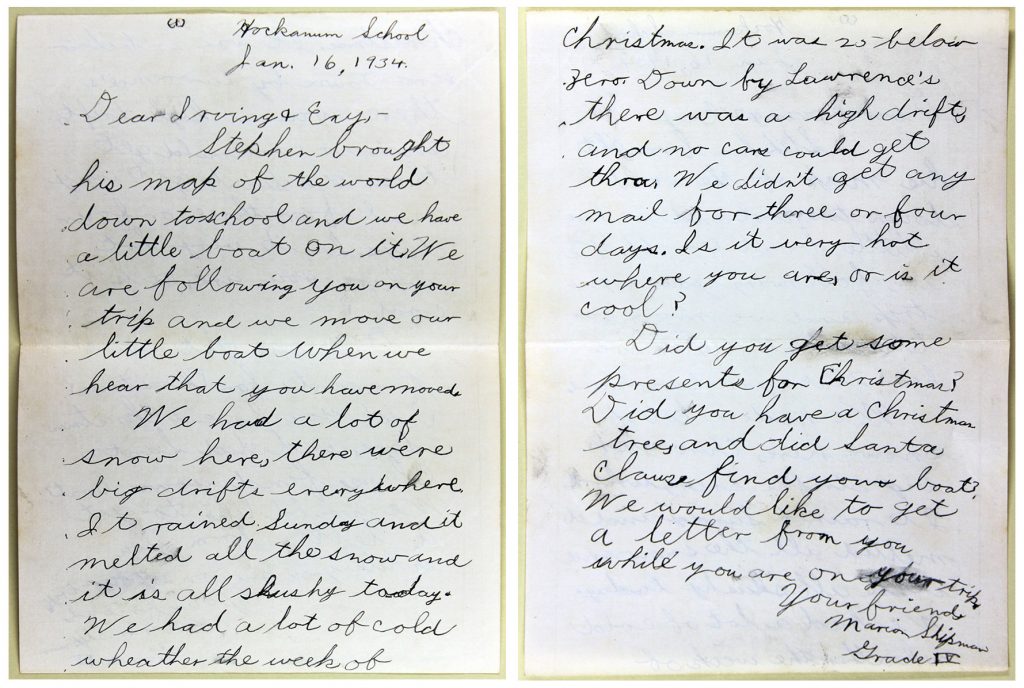 Hockanum School
Jan. 16, 1934.
Dear Irving & Exy,-
Stephen brought
his map of the world
down to school and we have
a little boat on it. We
are following you on your
trip and we move our
little boat when we
hear that you have moved.
We had a lot of
snow here, there were
big drifts everywhere.
It rained Sunday and it
melted all the snow and
it is all slushy today.
We had a lot of cold
wheather the week of
Christmas. It was 25 below
zero. Down by Lawrence's
there was a high drift,
and no cars could get
thru. We didn't get any
mail for three or four
days. Is it very hot
where you are, or is it
cool?
Did you get some
presents for Christmas?
Did you have a Christmas
tree, and did Santa
Clause find your boat?
We would like to get
a letter from you
while you are on your trip.
Your friend,
Marion Shipman
Grade IV